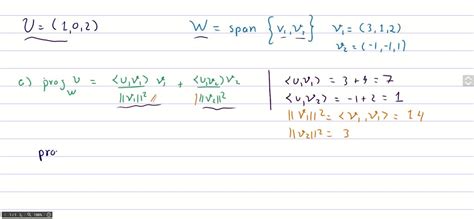 U = (1,0,2) W = span {v₁, v₂} v₁ = (3,1,2)
v₂ = (-1,-1,1)
c) proj_W U = <U,V₁> V₁ / ||V₁||² + <U,V₂> V₂ / ||V₂||²
<U,V₁> = 3+4 = 7
<U,V₂> = -1+2 = 1
||V₁||² = <V₁,V₁> = 14
||V₂||² = 3
pro